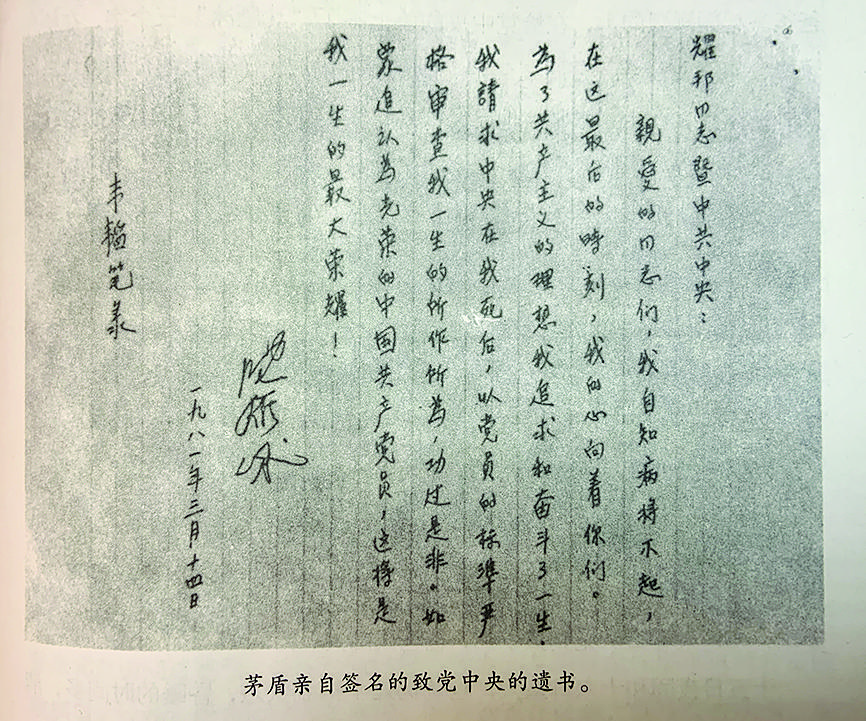 耀邦同志暨中共中央：
親愛的同志们，我自知病将不起，
在这最后的時刻，我的心向着你们。
為了共产主义的理想我追求和奋斗了一生，
我請求中央在我死后，以党员的标準严
格审查我一生的所作所為，功过是非。如
蒙追认為光荣的中国共产党员，这将是
我一生的最大荣耀！
沈雁冰
一九八一年三月十四日
韦韬笔录
茅盾亲自签名的致党中央的遗书。